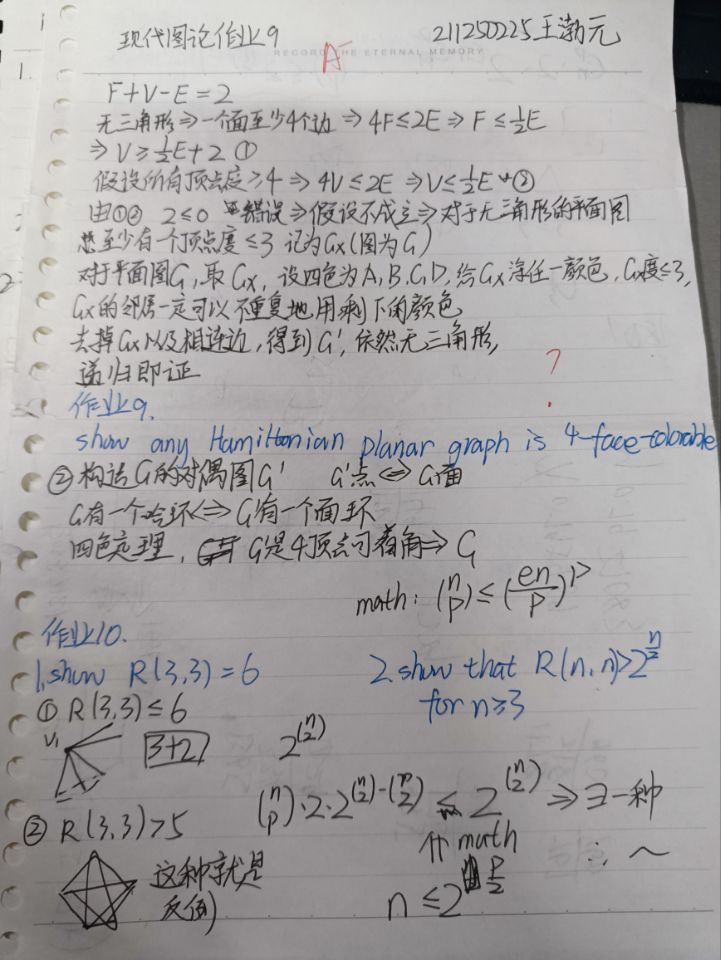 现代图论作业9
211250225 王渤元
RECORD THE ETERNAL MEMORY
A-
1.
F+V-E=2
无三角形⇒一个面至少4个边 ⇒ 4F≤2E ⇒ F≤½E
⇒ V≥½E+2 ①
假设所有顶点度≥4 ⇒ 4V≤2E ⇒ V≤½E ②
由①② 2≤0 错误⇒假设不成立⇒对于无三角形的平面图
至少有一个顶点度≤3 记为Gx(图为G)
对于平面图G,取Gx,设四色为A,B,C,D,给Gx涂任一颜色,Gx度≤3,
Gx的邻居一定可以不重复地用剩下的颜色
去掉Gx以及相连边,得到G',依然无三角形,
递归即证
?
作业9.
show any Hamiltonian planar graph is 4-face-colorable
② 构造G的对偶图G' G'点⇔G面
G有一个哈环⇔G'有一个面环
四色定理, G是4顶点可着角⇒G
math: (n p) ≤ (en/p)^p
作业10.
1. show R(3,3)=6
2. show that R(n,n)>2^(n/2)
for n≥3
① R(3,3)≤6
V₁
3+2
2^(n 2)
② R(3,3)>5
(n p)·2·2^((n 2)-(p 2)) ≤ 2^(n 2) ⇒ ∃一种
math
∴ ~
这种就是
反例
n≤2^(p/2)